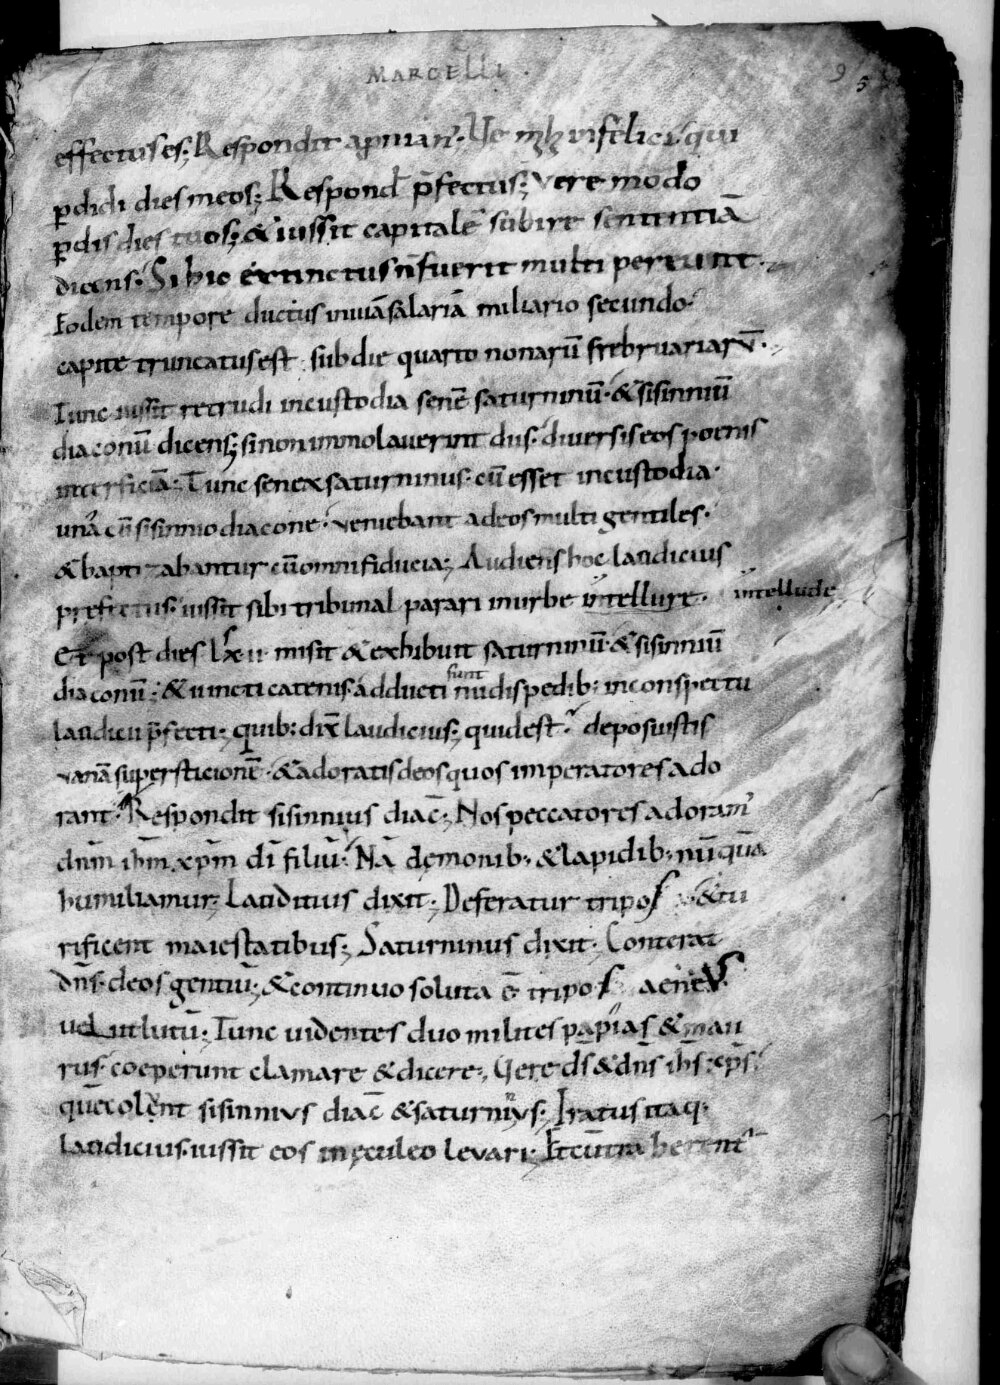 MARCELLI
95
effectus es; Respondit apnian᷒. Ve mihi infelici. qui
ꝑdidi dies meos; Respond̄ p̄fectus; vere modo
ꝑdis dies tuos; & iussit capitalē subire sententiā
dicens. Si hic extinctus n̄ fuerit multi pereunt.
Eodem tempore ductus inviā salariā miliario secundo.
capite truncatus est subdie quarto nonarū frebruariarū.
Tunc iussit retrudi incustodia senē saturninū. & sisinniū
diaconū dicens; sinon immolaverint diis. diversis eos poenis
interficiā. Tunc senex saturninus. cū esset incustodia.
unā cū sisinnio diacone. veniebant adeos multi gentiles.
& baptizabantur cū omni fiducia; Audiens hoc laudicius
prefectus. iussit sibi tribunal parari inurbe intellure. intellude
Et post dies lxii misit & exhibuit saturninū. & sisinniū
diaconū; & vincti catenis. adducti sunt nudis pedib; inconspectu
laudicii p̄fecti; quib; dix̄ laudicius; quid est? deposuistis
vanā superstitionē. & adoratis deos quos imperatores ado
rant? Respondit sisinnius diac̄; Nos peccatores adoram᷒
dn̄m ih̄m xp̄m dī filiū. Nā demonib; & lapidib; nūquā
humiliamur; Lauditius dixit; Deferatur tripos & tu
rificent maiestatibus; Saturninus dixit; Conterat
dn̄s. deos gentiū; & continuo soluta ē tripos aeneus.
vel ut lutū; Tunc videntes duo milites papias & mau
rus. coeperunt clamare & dicere; Vere ds̄ & dn̄s ih̄s xp̄s.
quē colent sisinnius diac̄ & saturninus; Iratus itaq.
laudicius. iussit eos in eculeo levari; Et cū traherent᷒